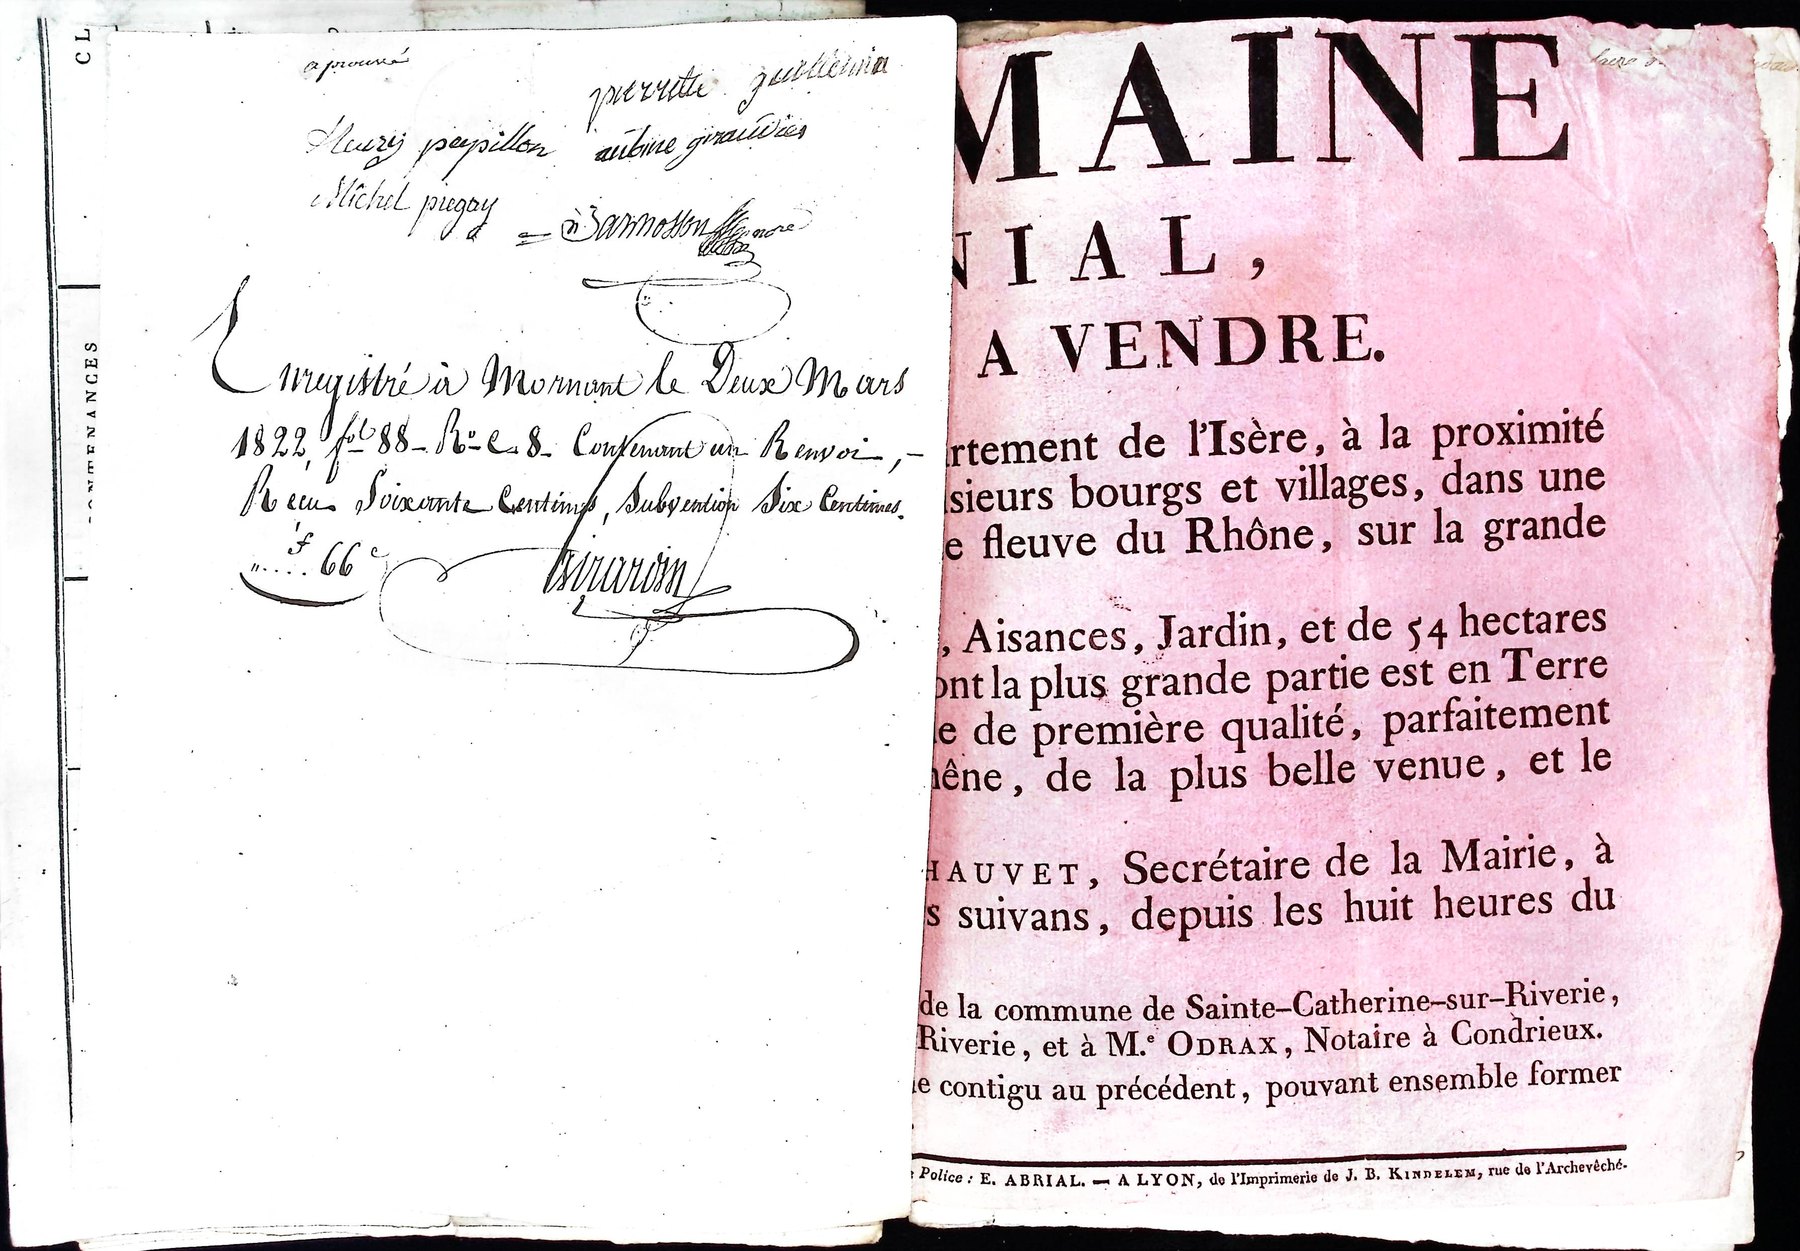 CL
CONTENANCES
aprouvé
pierrette guillermin
fleury papillon aubine giraudier
Michel pregay
Enregistré à Mornant le Deux Mars
1822, fol 88 - Ro C. 8 - Contenant un Renvoi, -
Reçu Soixante Centimes, Subvention Six Centimes.
f 66 c
Girardin
MAINE
NIAL,
A VENDRE.
rtement de l'Isère, à la proximité
sieurs bourgs et villages, dans une
e fleuve du Rhône, sur la grande
, Aisances, Jardin, et de 54 hectares
ont la plus grande partie est en Terre
e de première qualité, parfaitement
hêne, de la plus belle venue, et le
HAUVET, Secrétaire de la Mairie, à
s suivans, depuis les huit heures du
de la commune de Sainte-Catherine-sur-Riverie,
Riverie, et à M.e ODRAX, Notaire à Condrieux.
e contigu au précédent, pouvant ensemble former
Police : E. ABRIAL. — A LYON, de l'Imprimerie de J. B. KINDELEM, rue de l'Archevêché.